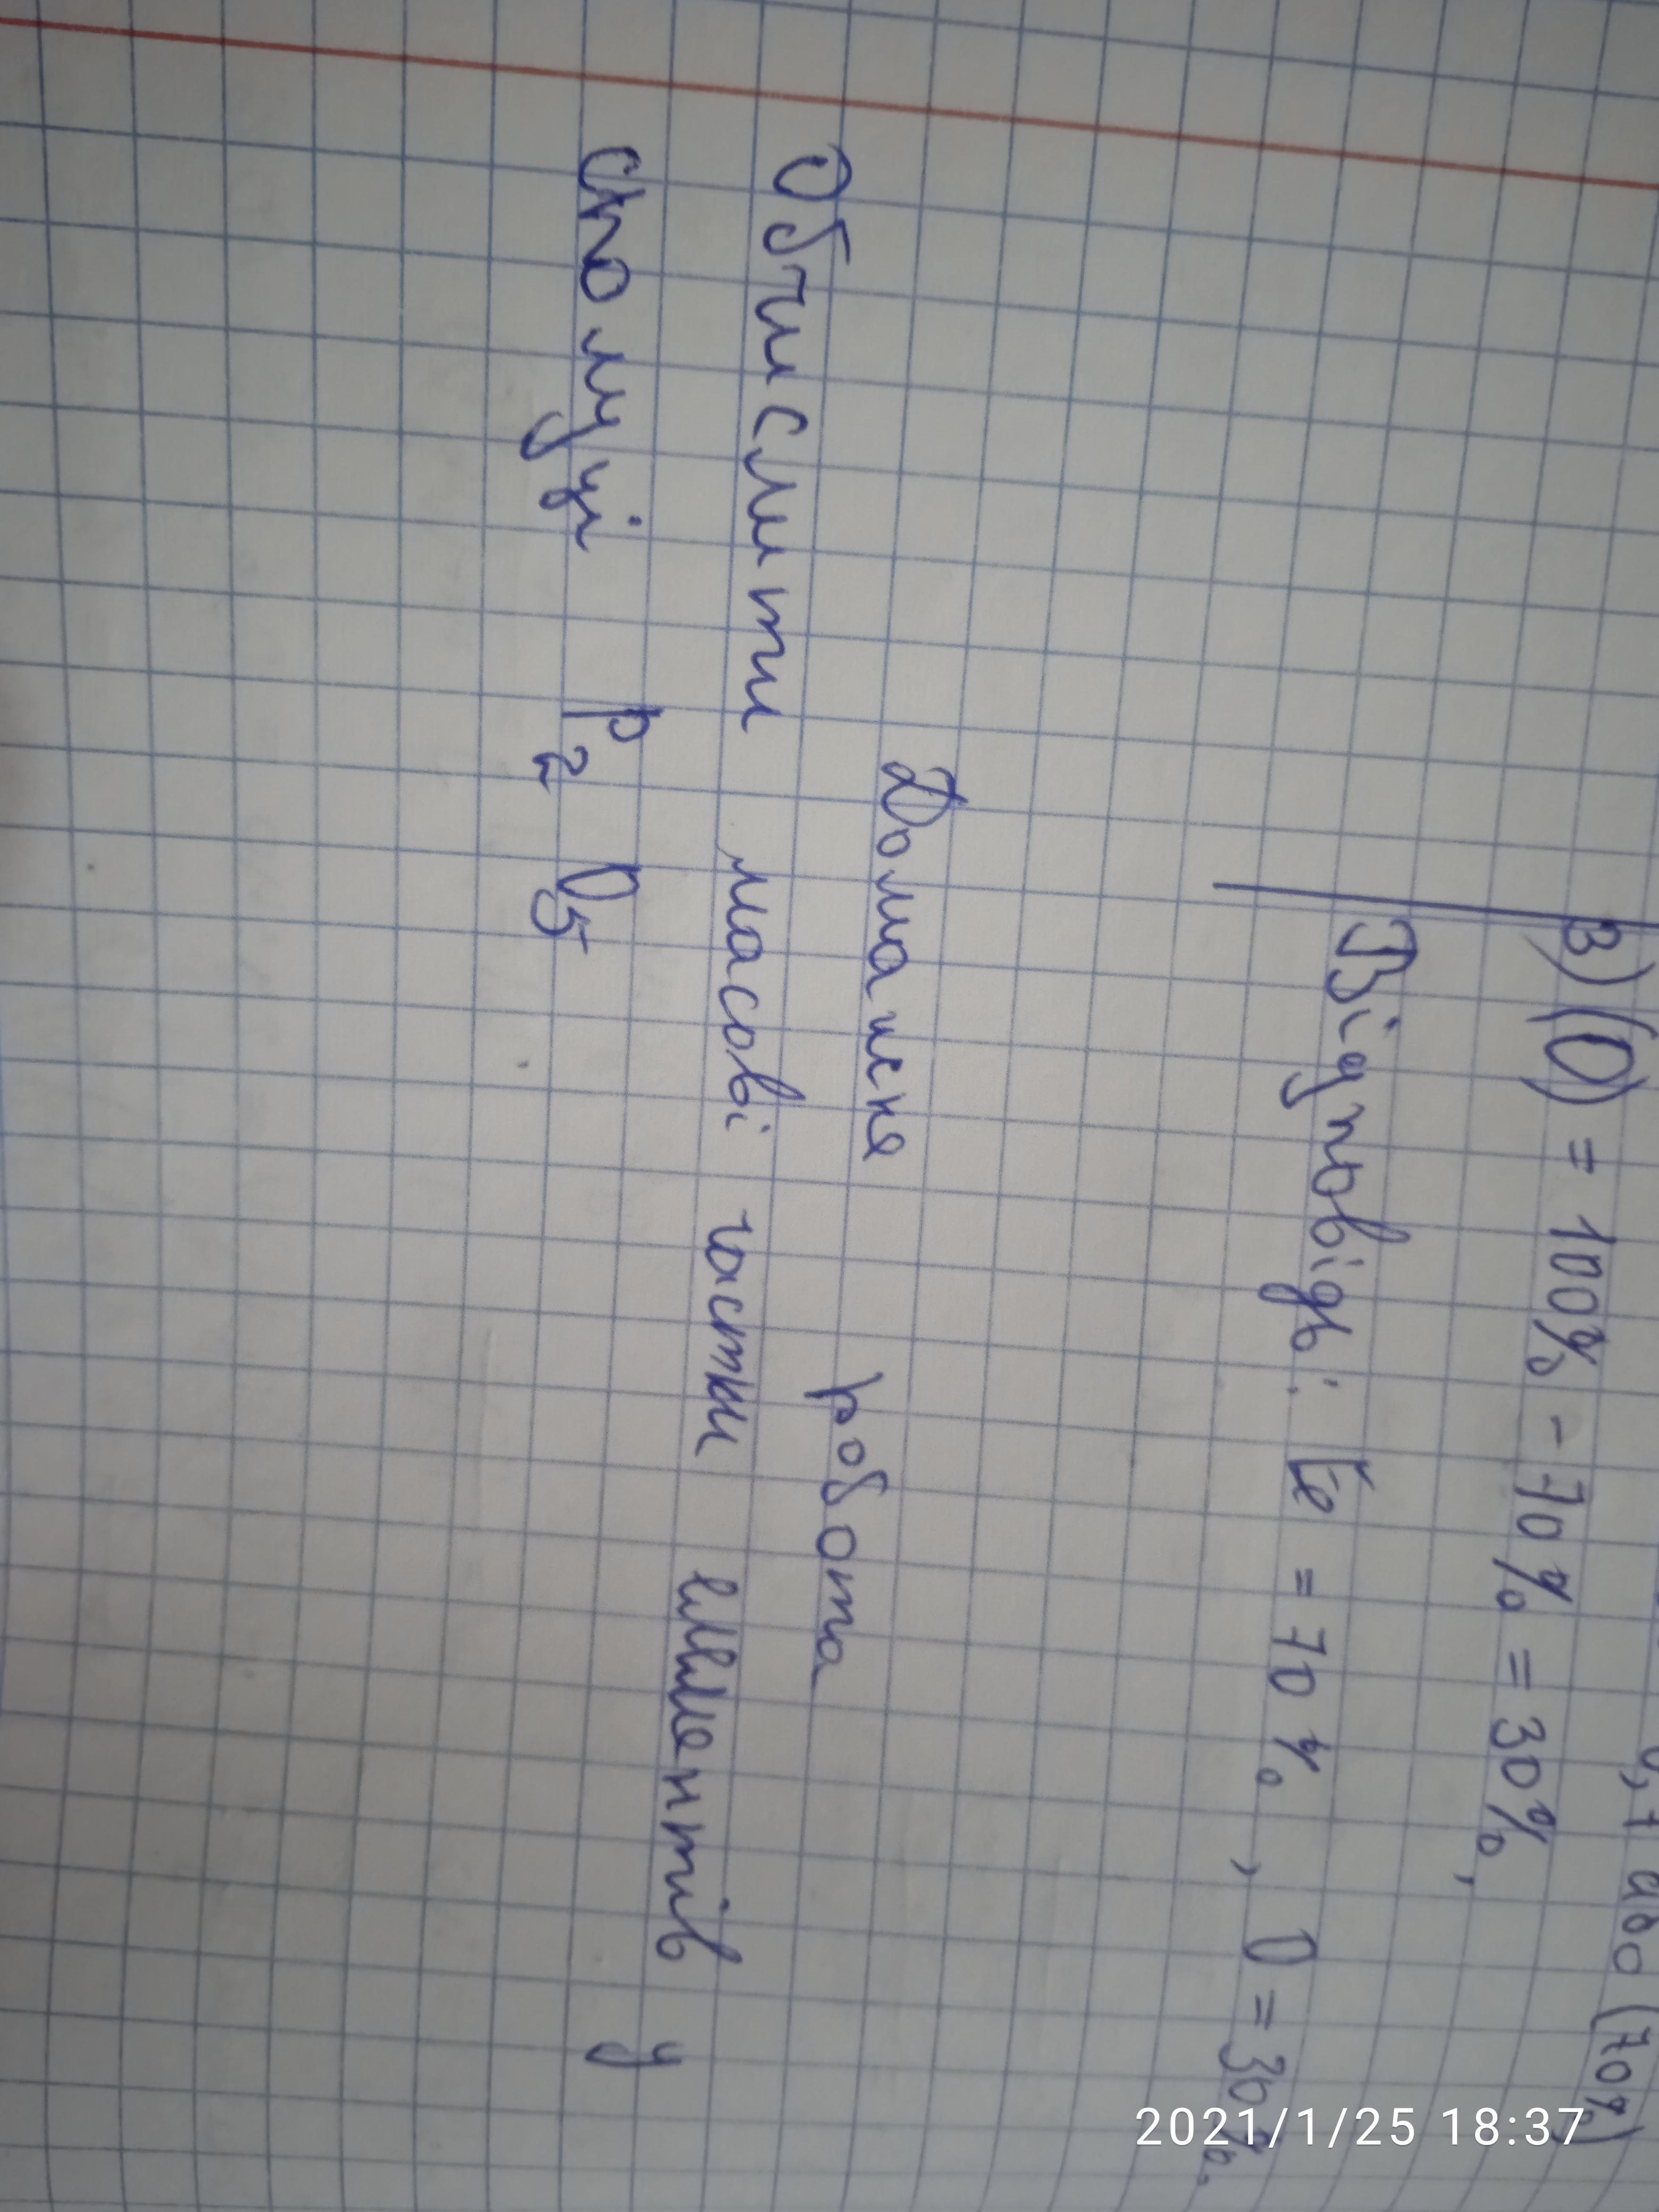 0,7 або (70%)
В) (O) = 100% - 70% = 30%,
Відповідь: Fe = 70%, O = 30%.
Домашня робота
Обчислити масові частки елементів у
сполуці P2O5
2021/1/25 18:37